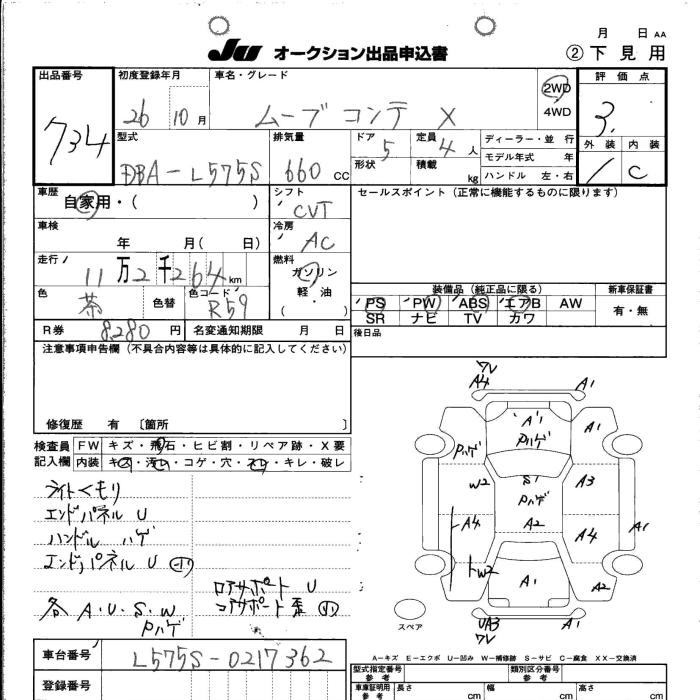 月 日 AA
JU オークション出品申込書 ②下見用
出品番号 734
初度登録年月 26 10月
車名・グレード ムーブコンテ X
2WD
4WD
評価点 3.
型式 DBA-L575S
排気量 660 CC
ドア 5
形状
定員 4 人
積載 kg
ディーラー・並 行
モデル年式 年
ハンドル 左・右
外装 内装 C
車歴 自家用・( )
シフト CVT
セールスポイント(正常に機能するものに限ります)
車検 年 月( 日)
冷房 AC
走行 11万2千264km
燃料 ガソリン
軽・油
( )
色 茶 色替
色コード R59
装備品(純正品に限る) 新車保証書
PS PW ABS エアB AW
SR ナビ TV カワ
有・無
R券 8,280 円 名変通知期限 月 日
後日品
注意事項申告欄(不具合内容等は具体的に記入してください)
修復歴 有 〔箇所 〕
検査員 FW キズ・飛石・ヒビ割・リペア跡・X要
記入欄 内装 キズ・汚レ・コゲ・穴・スレ・キレ・破レ
ライトくもり
エンドパネル U
ハンドル ハゲ
エンドパネル U
各 A・U・S・W
Pハゲ
ロアサポート U
コアサポート歪
ワレ
A4 A1
A1
Pハゲ
A1
Pハゲ
W2
S1
Pハゲ
A3
A4
A2
A4
A1
W2
A1
A2
スペア
UA3
ワレ
A1
A-キズ E-エクボ U-凹み W-補修跡 S-サビ C-腐食 XX-交換済
車台番号 L575S-0217362
登録番号
型式指定番号
参考
類別区分番号
参考
車庫証明用
参考
長さ cm
幅 cm
高さ cm